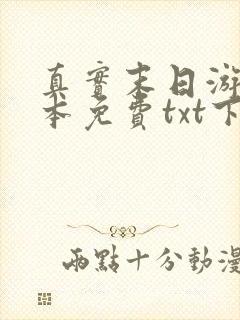 真實末日游
本免費txt下
兩點十分動漫